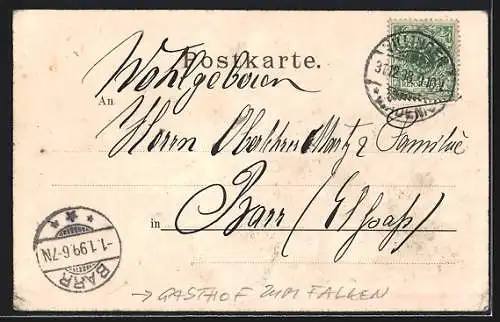 Postkarte.
Wohlgeboren
An Herrn Oberlehrer Martz & Familie
in Barr (Elsass)
BARR
-1.1.99.6-7N
→ GASTHOF ZUM FALKEN